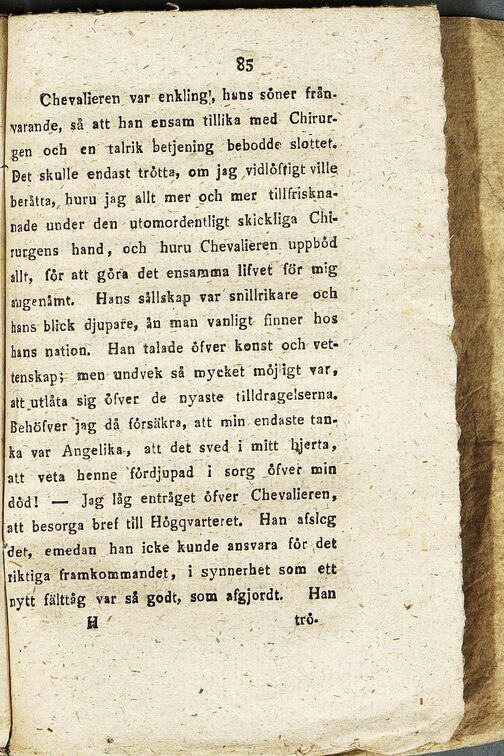 85
Chevalieren var enkling, hans söner från-
varande, så att han ensam tillika med Chirur-
gen och en talrik betjening bebodde slottet.
Det skulle endast trötta, om jag vidlöftigt ville
berätta, huru jag allt mer och mer tillfriskna-
nade under den utomordentligt skickliga Chi-
rurgens hand, och huru Chevalieren uppböd
allt, för att göra det ensamma lifvet för mig
angenämt. Hans sällskap var snillrikare och
hans blick djupare, än man vanligt finner hos
hans nation. Han talade öfver konst och vet-
tenskap; men undvek så mycket möjligt var,
att utlåta sig öfver de nyaste tilldragelserna.
Behöfver jag då försäkra, att min endaste tan-
ka var Angelika, att det sved i mitt hjerta,
att veta henne fördjupad i sorg öfver min
död! — Jag låg enträget öfver Chevalieren,
att besorga bref till Högqvarteret. Han afslog
det, emedan han icke kunde ansvara för det
riktiga framkommandet, i synnerhet som ett
nytt fälttåg var så godt, som afgjordt. Han
H trö-